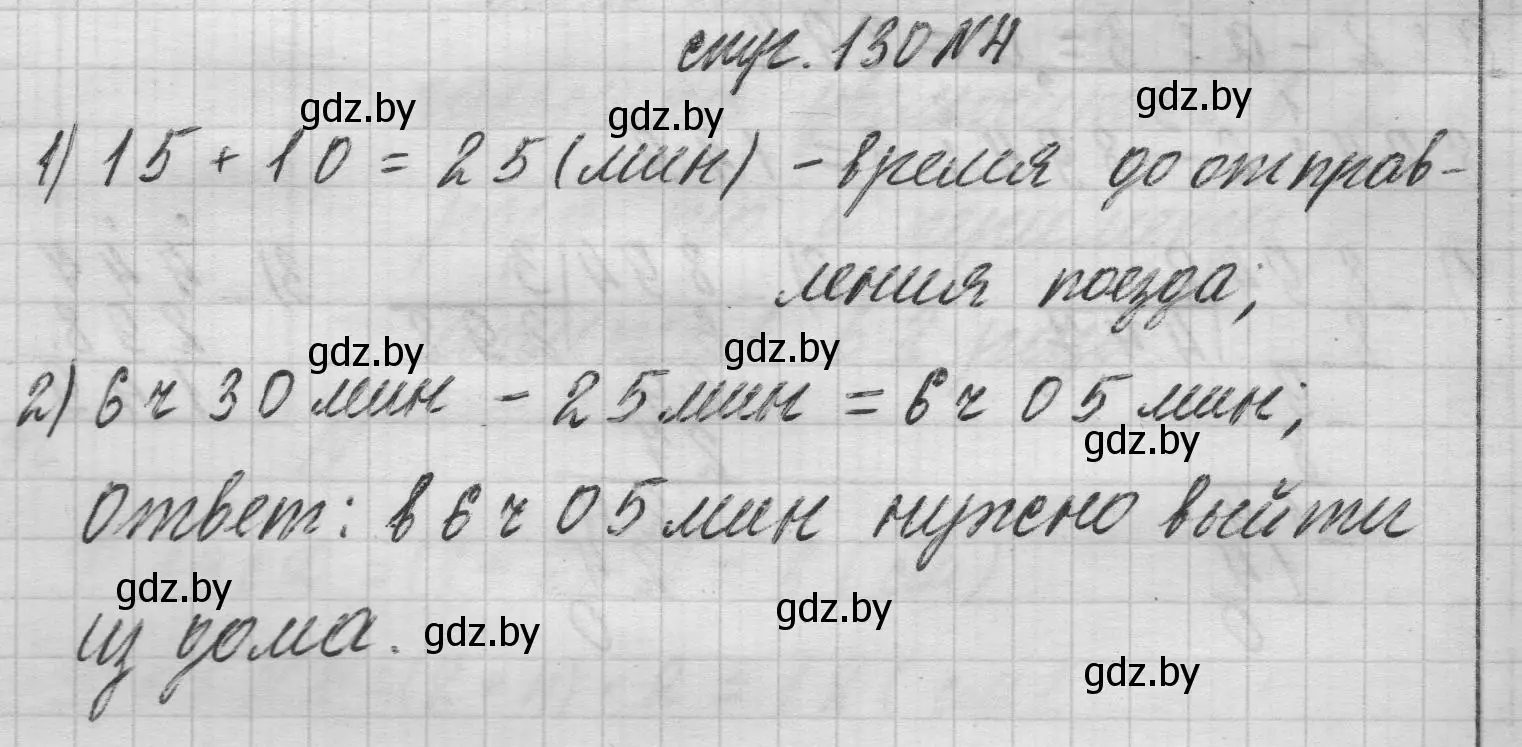 стр. 130 N4
gdz.by gdz.by gdz.by
1) 15 + 10 = 25 (мин) - время до отправ-
ления поезда;
gdz.by gdz.by
2) 6 ч 30 мин - 25 мин = 6 ч 05 мин;
gdz.by
Ответ: в 6 ч 05 мин нужно выйти
gdz.by gdz.by
из дома. gdz.by
gdz.by